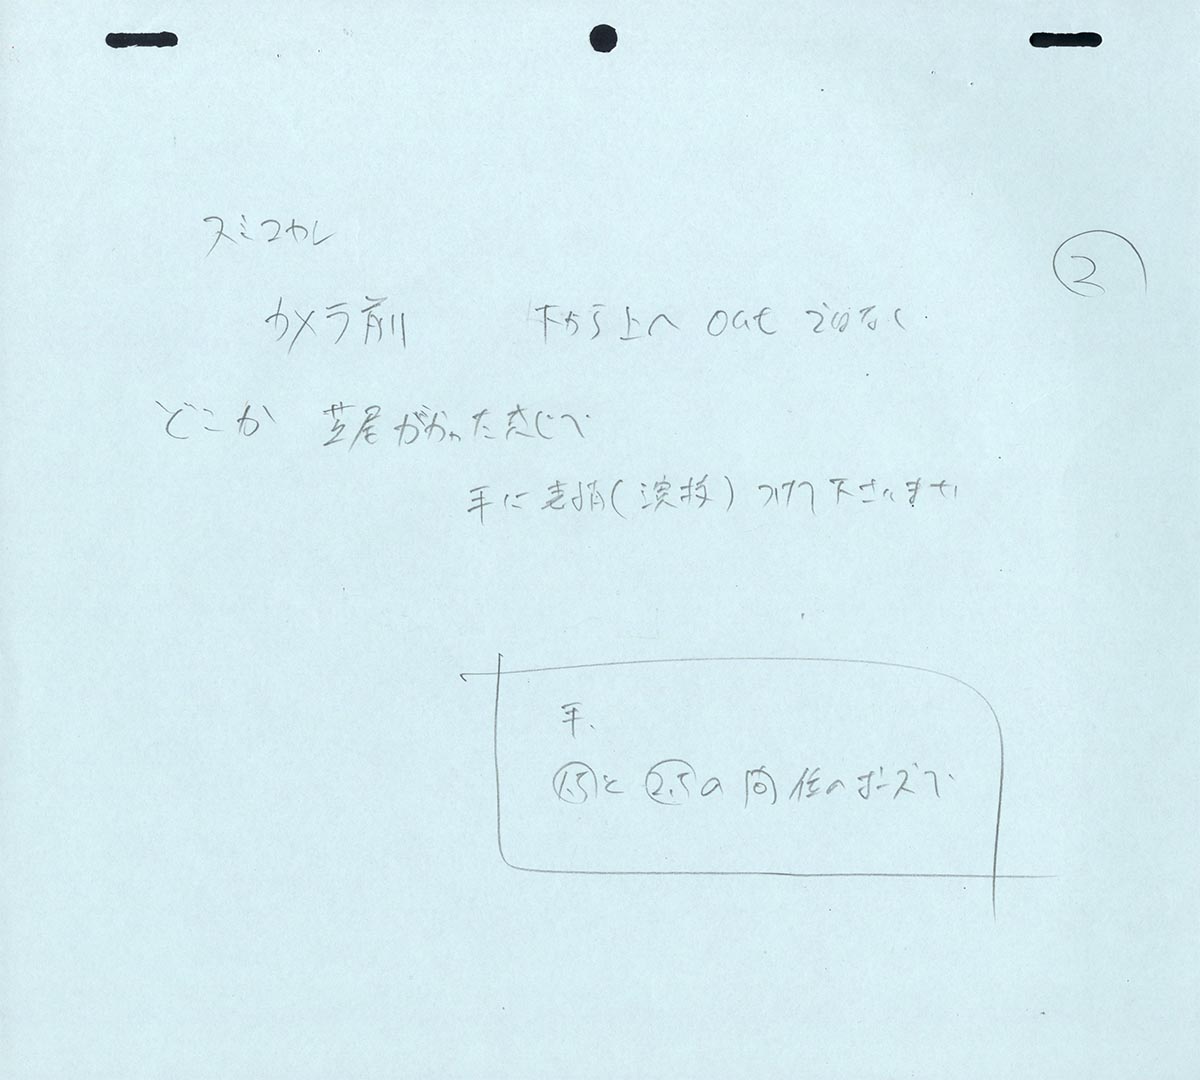 スミマセン
②
カメラ前 下から上へ out ではなく
どこか 芝居がかった感じで
手に表情(演技)つけて下さいませ
手、
①.5と②.5の 同位のポーズで